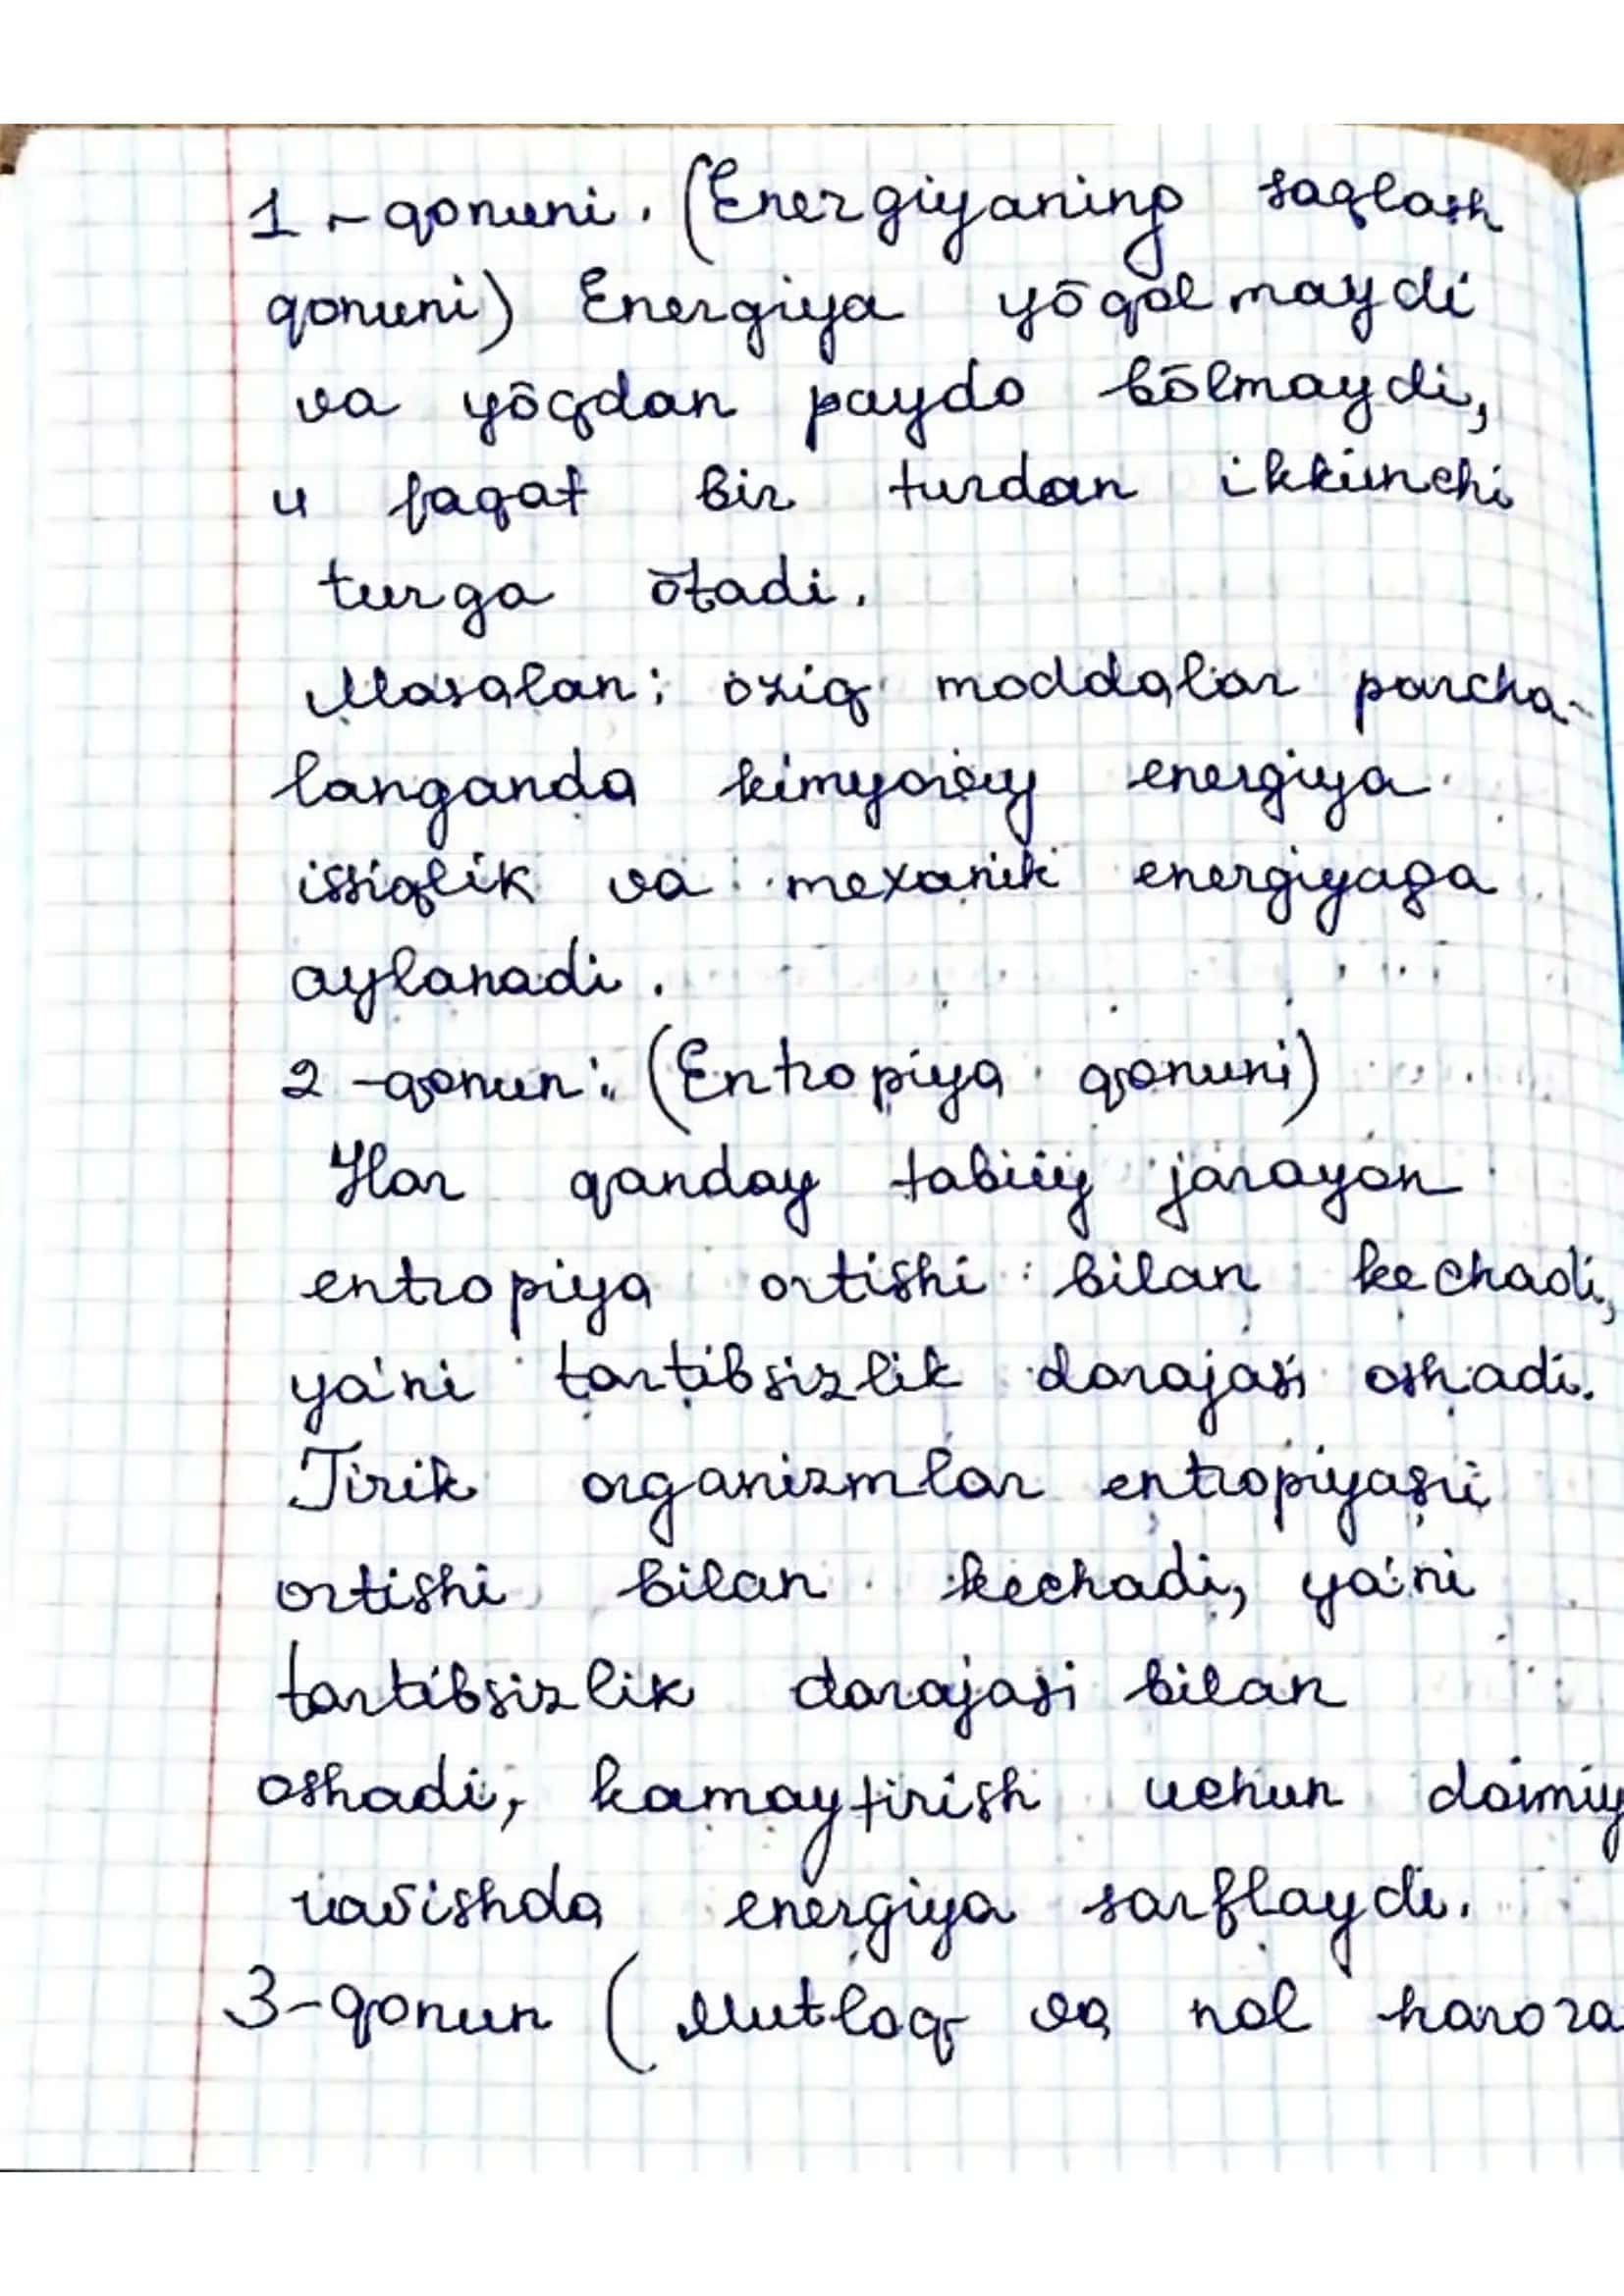 1-qonuni. (Energiyaning saqlash
qonuni) Energiya yōqolmaydi
va yôqdan paydo bōlmaydi,
u faqat bir turdan ikkinchi
turga ōtadi.
Masalan; oziq moddalar parcha-
langanda kimyoviy energiya
issiqlik va mexanik energiyaga
aylanadi.
2-qonun: (Entropiya qonuni)
Har qanday tabiiy jarayon
entropiya ortishi bilan kechadi,
ya'ni tartibsizlik darajasi oshadi.
Tirik organizmlar entropiyasi
ortishi bilan kechadi, ya'ni
tartibsizlik darajasi bilan
oshadi, kamaytirish uchun doimiy
ravishda energiya sarflaydi.
3-qonun (Mutlaq va nol harora